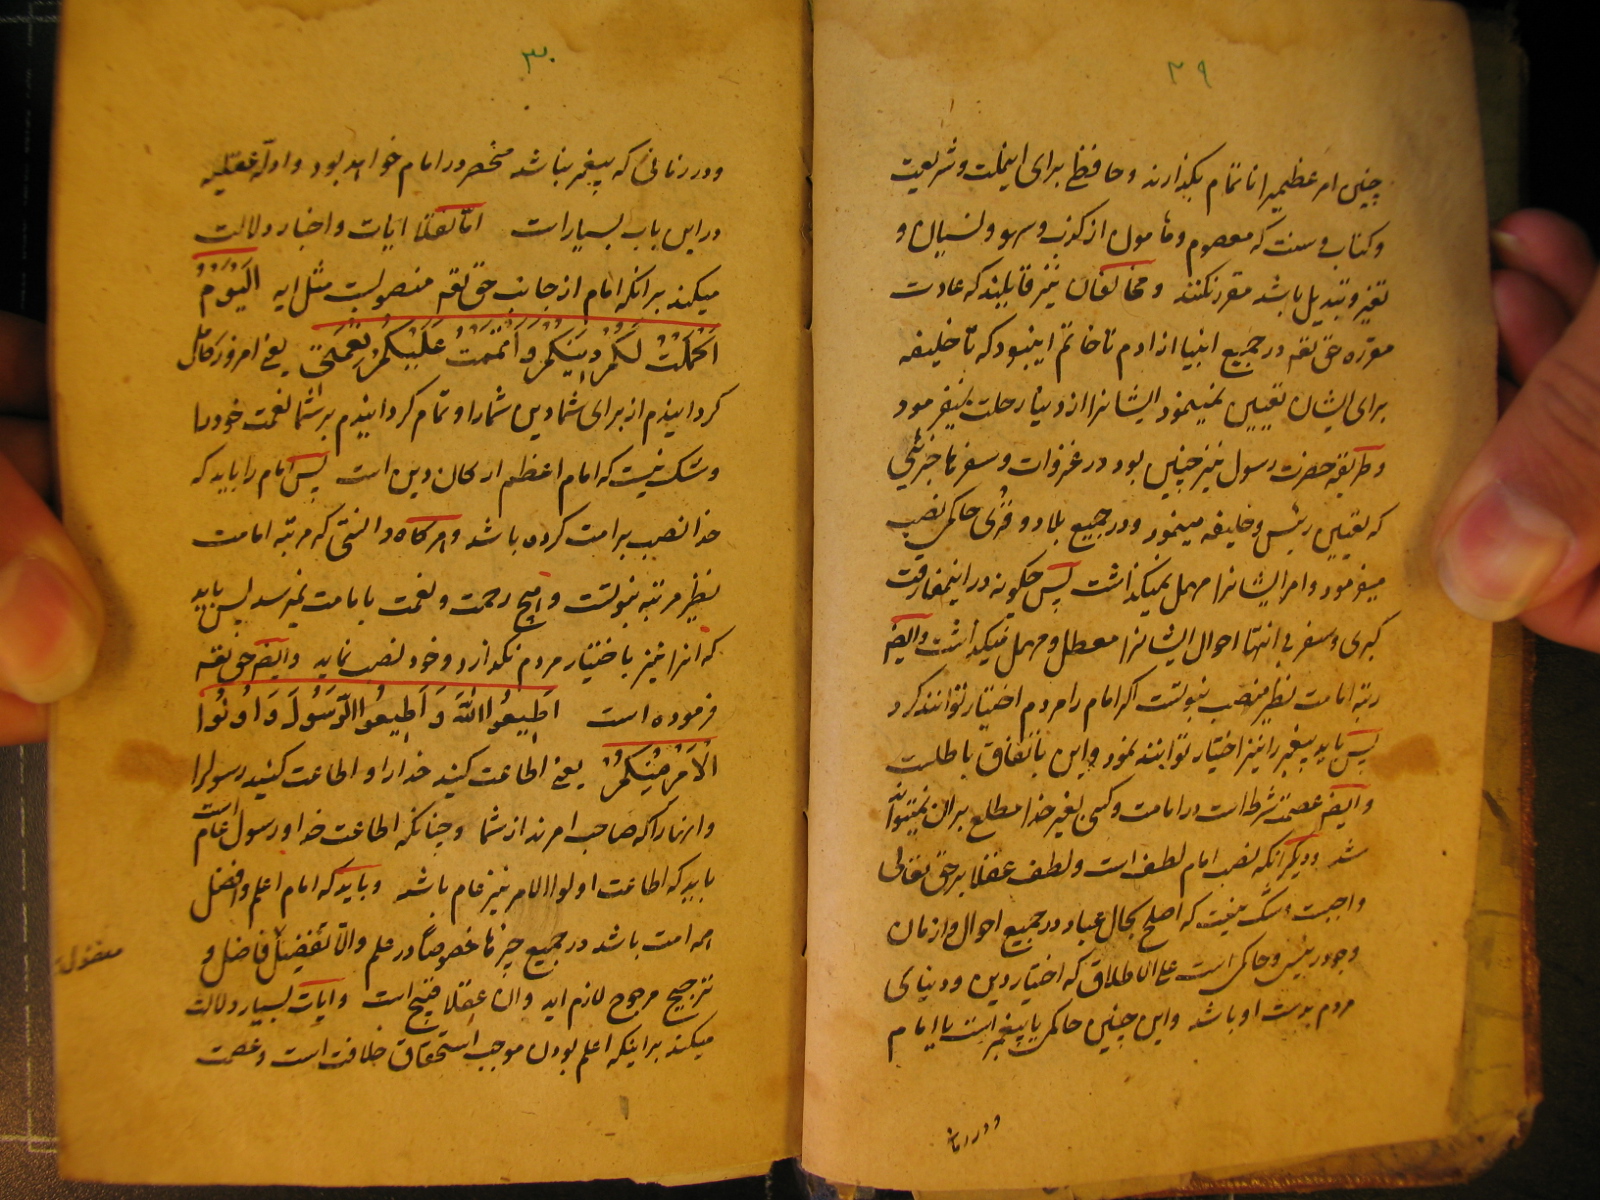 ۲۹
چنین امر عظیمیرا ناتمام بگذارند و حافظی برای اینملت و شریعت
و کتاب و سنت که معصوم و مامون از کذب و سهو و نسیان و
تغیر و تبدیل باشد مقرر نکنند و مخالفان نیز قایلند که عادت
مقرره حق تعه در جمیع انبیا از ادم تا خاتم این بود که تا خلیفه
برای ایشان تعیین نمینمود ایشانرا از دنیا رحلت نمیفرمود
و طریقه حضرت رسول نیز چنین بود در غزوات و سفرها جزئی
که تعیین رئیس و خلیفه مینمود و در جمیع بلاد و قری حاکمی نصب
میفرمود و امر ایشانرا مهمل نمیکذاشت پس چکونه در اینمفارقت
کبری و سفر بی انتها احوال ایشانرا معطل و مهمل میکذاشت وایضا
رتبه امامت نظیر منصب نبوتست اکر امام را مردم اختیار توانند کرد
پس باید پیغمبر را نیز اختیار توانند نمود و این باتفاق باطلست
وایضا عصمت شرط است در امامت و کسی بغیر خدا مطلع بران نمیتواند
شد و دیکر انکه نصب امام لطف است و لطف عقلا بر حق تعالی
واجبست و شک نیست که اصلح بحال عباد در جمیع احوال و ازمان
وجود رئیس و حاکمی است علی الاطلاق که اختیار دین و دنیای
مردم بدست او باشد و این چنین حاکمی یا پیغمبر است یا امام
و در زمانی
۳۰
و در زمانی که پیغمبر نباشد منحصر در امام خواهد بود و ادله عقلیه
در این باب بسیار است اما نقلا ایات و اخبار دلالت
میکند بر انکه امام از جانب حق تعه منصوبست مثل ایه الیَوْمَ
اَکْمَلْتُ لَکُمْ دِینَکُمْ وَ اَتْمَمْتُ عَلَیْکُمْ نِعْمَتی یعنی امروز کامل
کردانیدم از برای شما دین شما را و تمام کردانیدم بر شما نعمت خود را
و شک نیست که امام اعظم ارکان دین است پس امام را باید که
خدا نصب بر امت کرده باشد و هرکاه دانستی که مرتبه امامت
نظیر مرتبه نبوتست و هیچ رحمت و نعمت بامامت نمیرسد پس باید
که انرا نیز باختیار مردم نکذارد و خود نصب نماید وایضا حق تعه
فرموده است اَطِیعُوا اللّٰهَ وَ اَطِیعُوا الرَّسُولَ وَ اوُلوُا
الْاَمْرِ مِنْکُمْ یعنی اطاعت کنید خدا را و اطاعت کنید رسولرا
و انها را که صاحب امرند از شما و چنانکه اطاعت خدا و رسول عام است
باید که اطاعت اولوا الامر نیز عام باشد و باید که امام اعلم و افضل
همه امت باشد در جمیع چیزها خصوصا در علم و الا تفضیل فاضل و
مفضول
ترجیح مرجوح لازم اید و ان عقلا قبیح است و ایات بسیار دلالت
میکند بر اینکه اعلم بودن موجب استحقاق خلافت است و عصمت